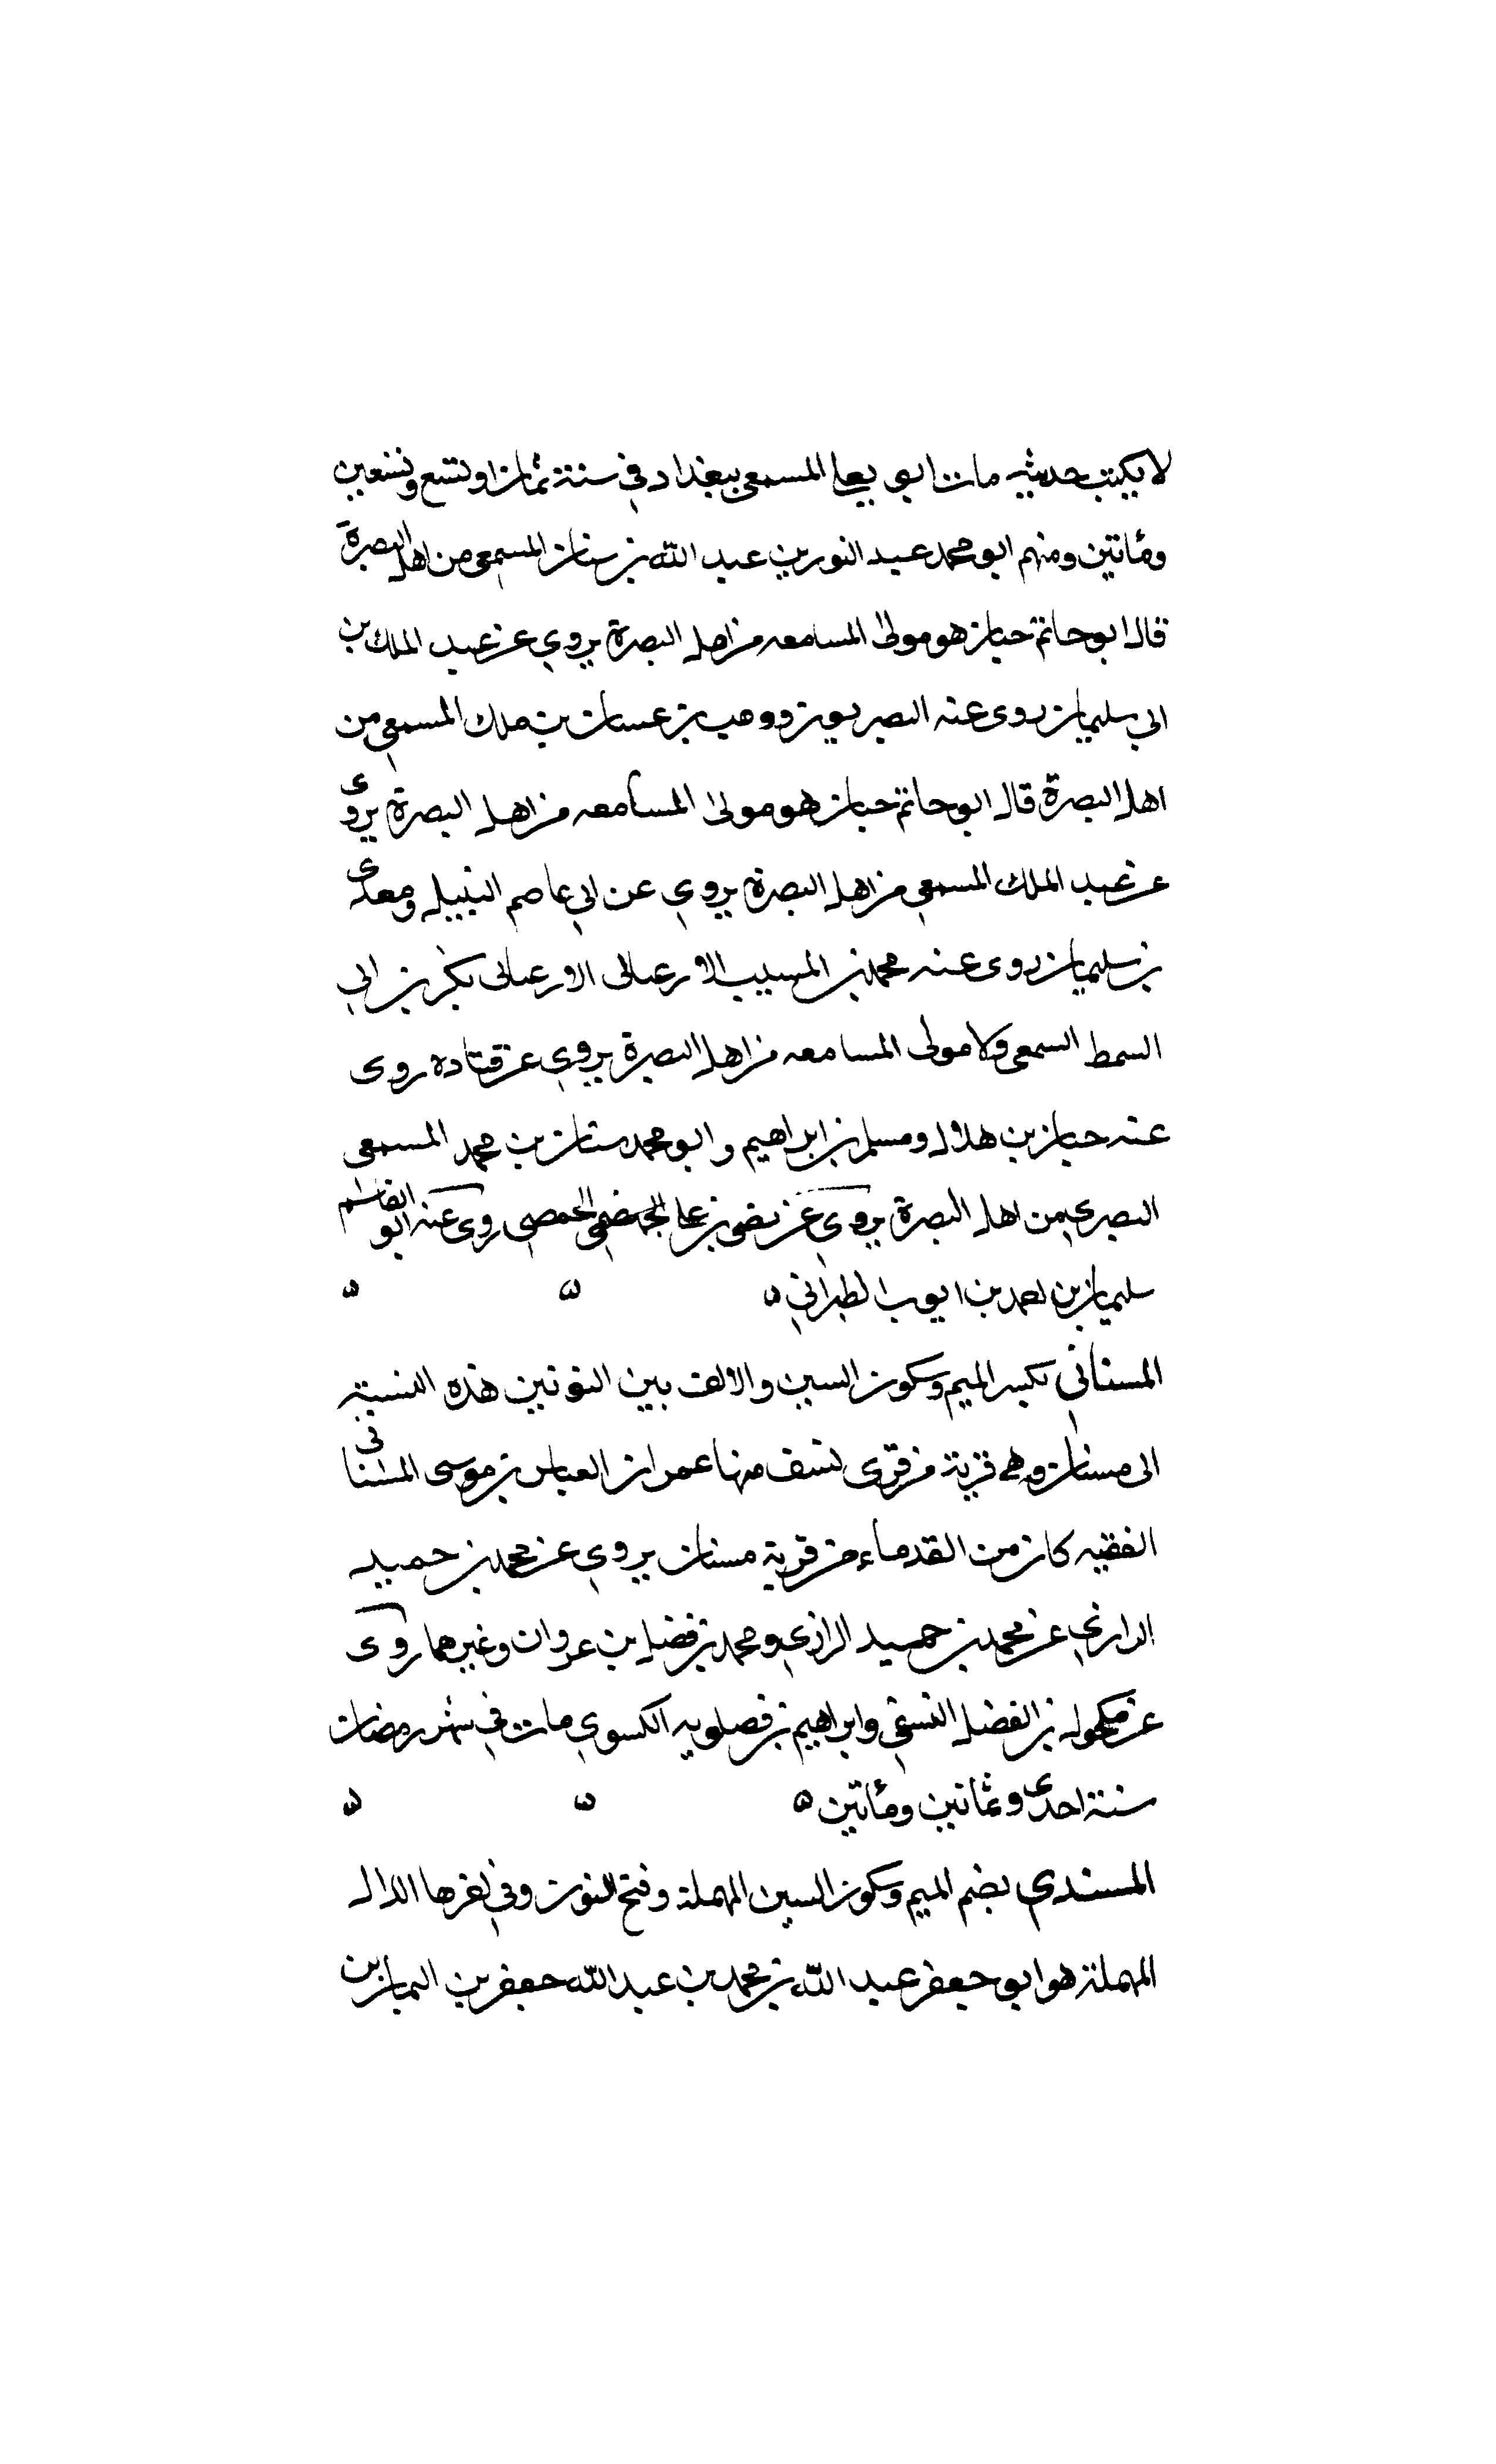 لا يكتب حديثه مات ابو يعلى المسمعي ببغداد في سنة ثمان او تسع وتسعين
ومأتين ومنهم ابو محمد عبد النور بن عبد الله بن سنان المسمعي من اهل البصرة
قال ابو حاتم حبان هو مولى المسامعه من اهل البصرة يروي عن عبد الملك بن
ابي سليمان روى عنه البصريون ووهب بن عسان بن ملك المسمعي من
اهل البصرة قال ابو حاتم حبان هو مولى المسامعه من اهل البصرة يروى
عن عبد الملك المسمعي من اهل البصرة يروي عن ابي عاصم النبيل ومعدى
بن سليمان روى عنه محمد بن المسيب الارعياني الارعياني بكر بن ابي
السمط السمعي ولا مولى المسامعه من اهل البصرة يروي عن قتاده روى
عنه حبان بن هلال ومسلم بن ابراهيم و ابو محمد سنان بن محمد المسمعي
البصري من اهل البصرة يروي عن نصر بن علي الجهضمي الحمصي روى عنه ابو القاسم
سليمان بن احمد بن ايوب الطبراني ه ه ه
المسناني بكسر الميم وسكون السين والالف بين النونين هذه النسبة
الى مسنان وهي قرية من قرى نسف منها عمران العباس بن موسى المسناني
الفقيه كان من القدماء من قرية مسنان يروي عن محمد بن حميد
الداري عن محمد بن حميد الرازي ومحمد بن فضل بن عروان وغيرهما روى
عن مكحول بن الفضل النسفي وابراهيم بن فصلويه الكسوي مات في شهر رمضان
سنة احدى وثمانين ومأتين ه ه ه
المسندي بضم الميم وسكون السين المهملة وفتح النون وفي اخرها الدال
المهملة هو ابو جعفر عبد الله بن محمد بن عبد الله جعفر بن اليمان بن